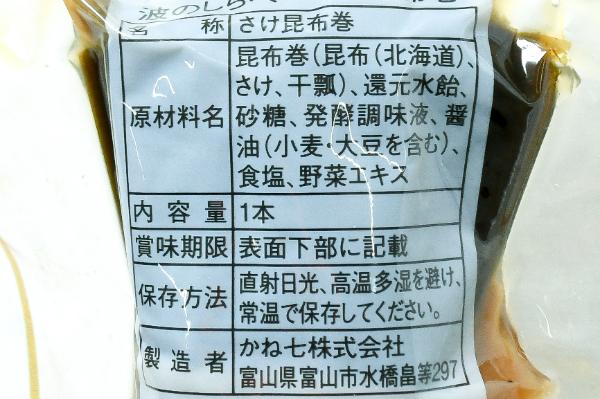 波のしらべ
名称 さけ昆布巻
原材料名 昆布巻(昆布(北海道)、
さけ、干瓢)、還元水飴、
砂糖、発酵調味液、醤
油(小麦・大豆を含む)、
食塩、野菜エキス
内容量 1本
賞味期限 表面下部に記載
保存方法 直射日光、高温多湿を避け、
常温で保存してください。
製造者 かね七株式会社
富山県富山市水橋畠等297